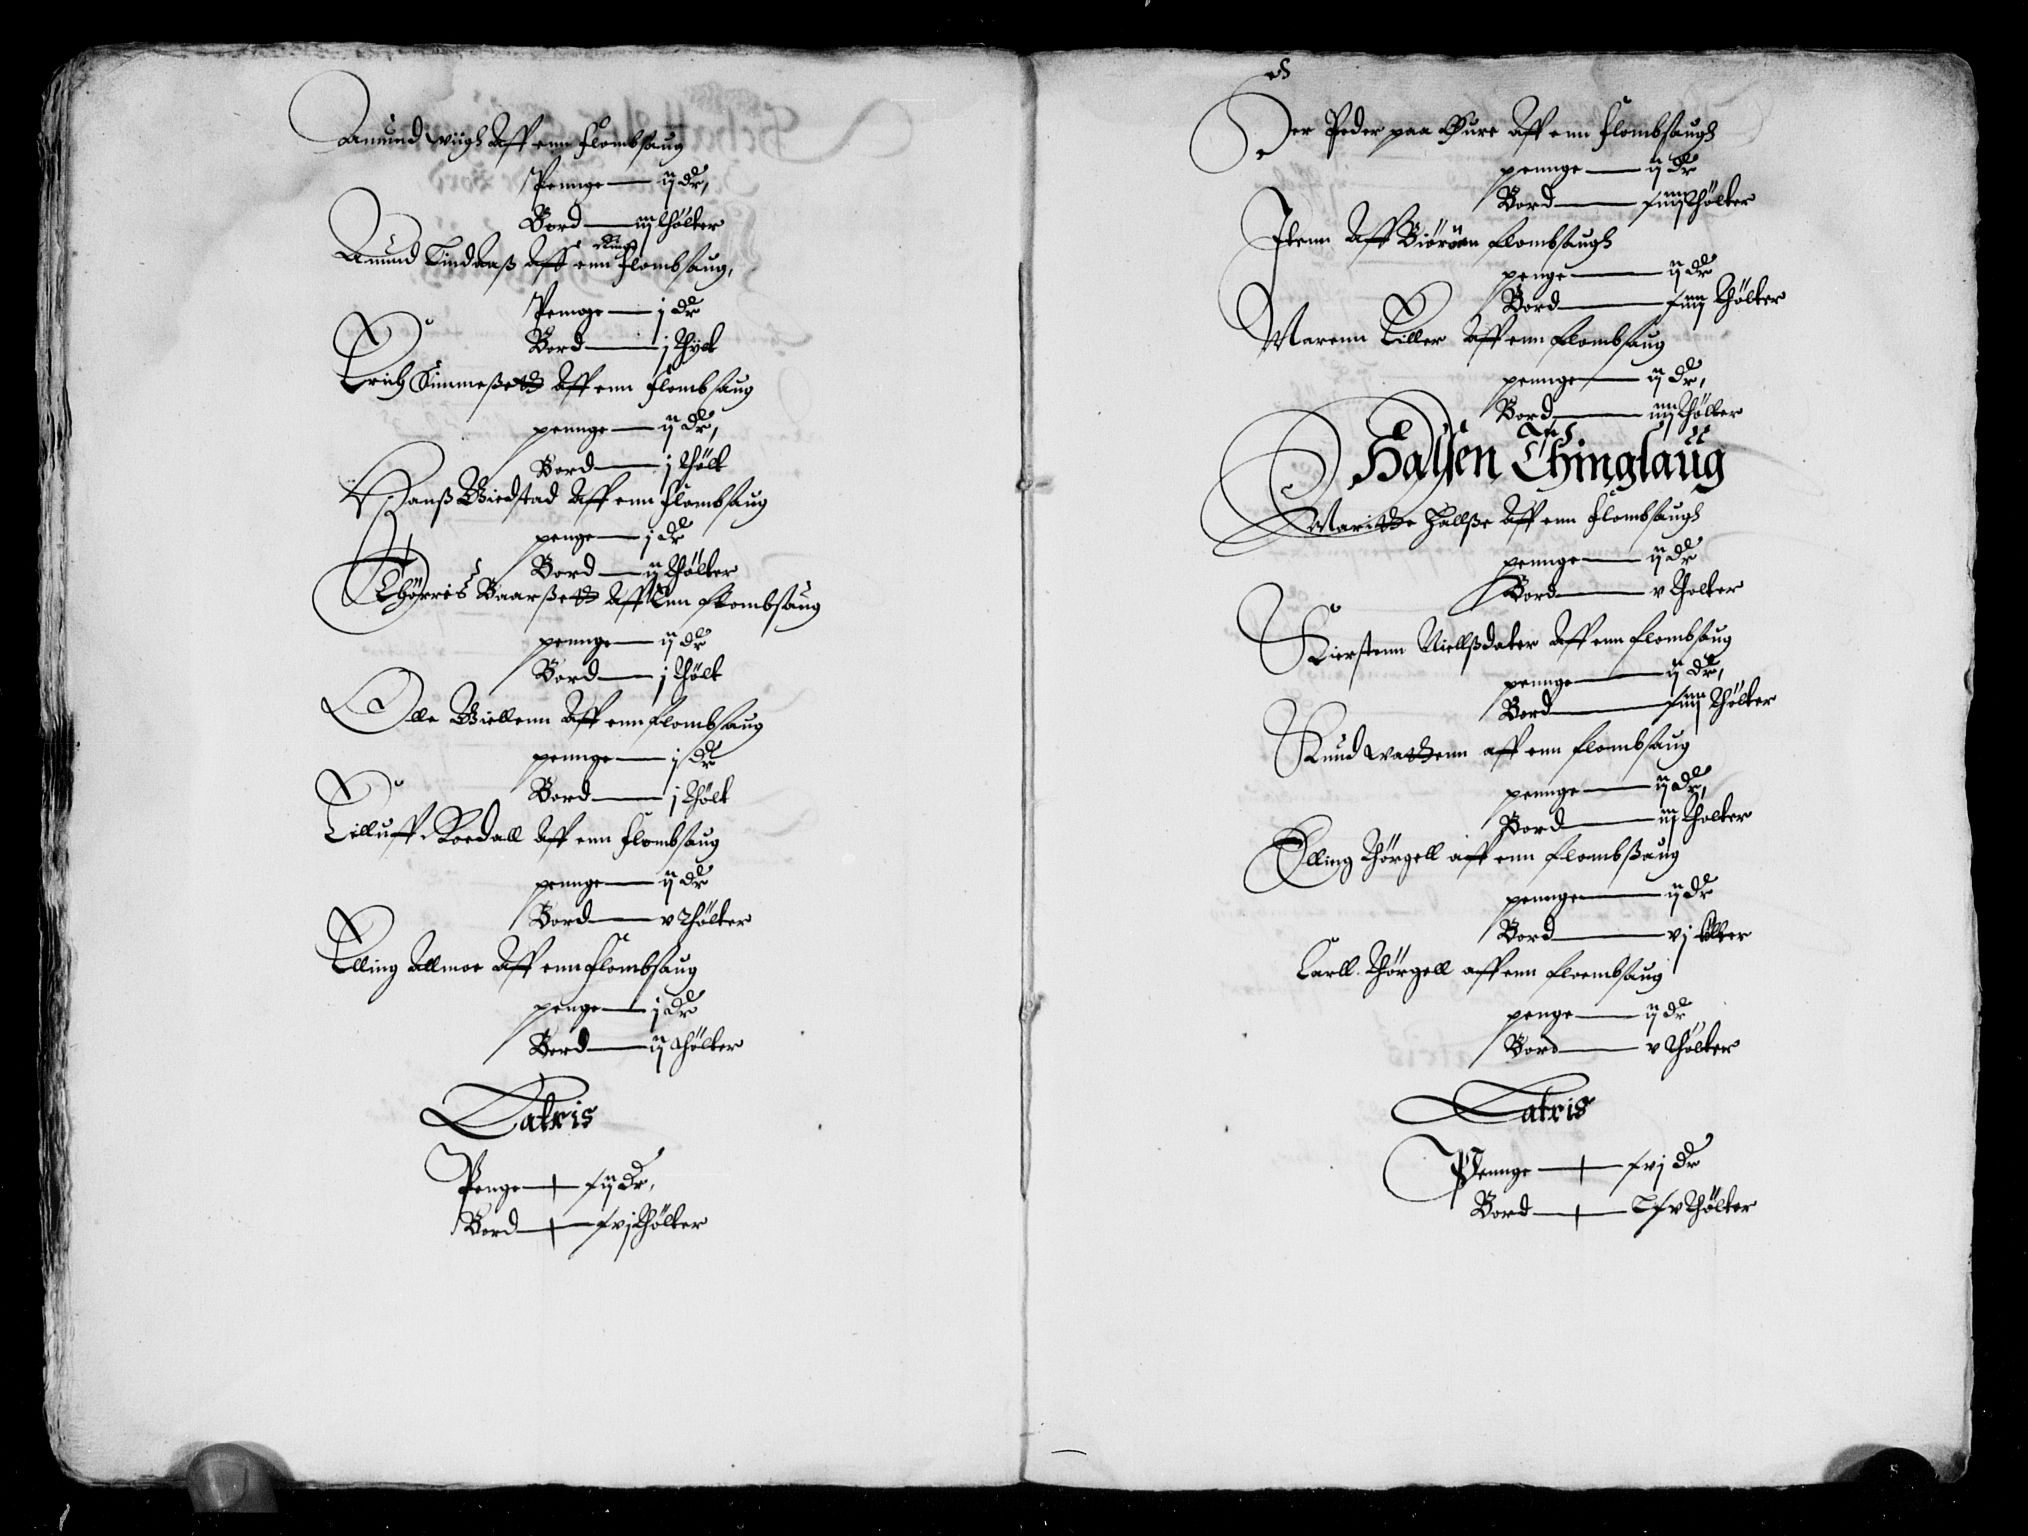 Amund wiigh Aff enn flombsaug
Pennge — ij dr,
Bord — iij thölter
Amund Lindaas Aff enn flombsaug,
Pennge — j dr
Bord — j thÿlt
Erich Simmeßeth Aff enn flombsaug
pennge — ij dr,
Bord — j thölt
Hanß Wiedstad Aff enn flombsaug
penge — j dr
Bord — ij thölter
Thörris Baarßeth Aff Enn flombsaug
pennge — ij dr
Bord — j thölt
Olle Wiellenn Aff enn flombsaug
pennge — j dr
Bord — j thölt
Elluff Roedall Aff enn flombsaug
pennge — ij dr
Bord — v thölter
Elling Allmoe Aff enn flombsaug
penge — j dr
Bord — ij thölter
Lateris
Penge — xij dr,
Bord — xvj thölter
Her Peder paa Sure Aff enn flombsaugh
pennge — ij dr
Bord — xiiij thölter
Jtenn Aff Biörönn flombsaugh
penge — ij dr
Bord — xiiij thölter
Marenn Eiller Aff enn flombsaug
pennge — ij dr,
Bord — iiij thölter
Halsen Thinglaug
Marithe Hallße Aff enn flombsaugh
pennge — ij dr
Bord — v tholter
Kierstenn Niellßdater Aff enn flombsaug
pennge — ij dr,
Bord — xiiij thölter
Knud wathenn aff enn flombsaug
pennge — ij dr,
Bord — iij tholter
Elling thörgell aff enn flombßaug
pennge — ij dr
Bord — vj ölter
Carll thörgell aff enn floembsaug
penge — ij dr
Bord — v thölter
Lateris
Pennge — xvj dr
Bord — Lxv thölter